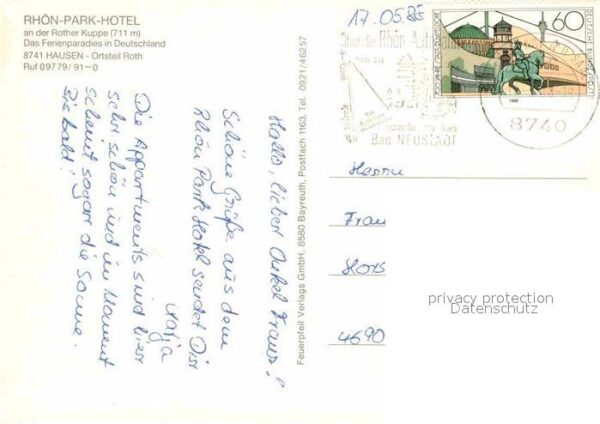 RHÖN-PARK-HOTEL
an der Rother Kuppe (711 m)
Das Ferienparadies in Deutschland
8741 HAUSEN - Ortsteil Roth
Ruf 0 97 79 / 91 - 0
17.05.85
60
DEUTSCHE BUNDESPOST
8740
Bad NEUSTADT
Hallo, lieber Onkel Franz!
Schöne Grüße aus dem
Rhön Park Hotel sendet Dir
Katja
Die Appartments sind hier
sehr schön und im Moment
scheint sogar die Sonne.
Bis bald!
Feuerpfeil Verlags GmbH, 8580 Bayreuth, Postfach 1163, Tel. 0921/46257
Herrn
Fran
Hors
4690
privacy protection
Datenschutz